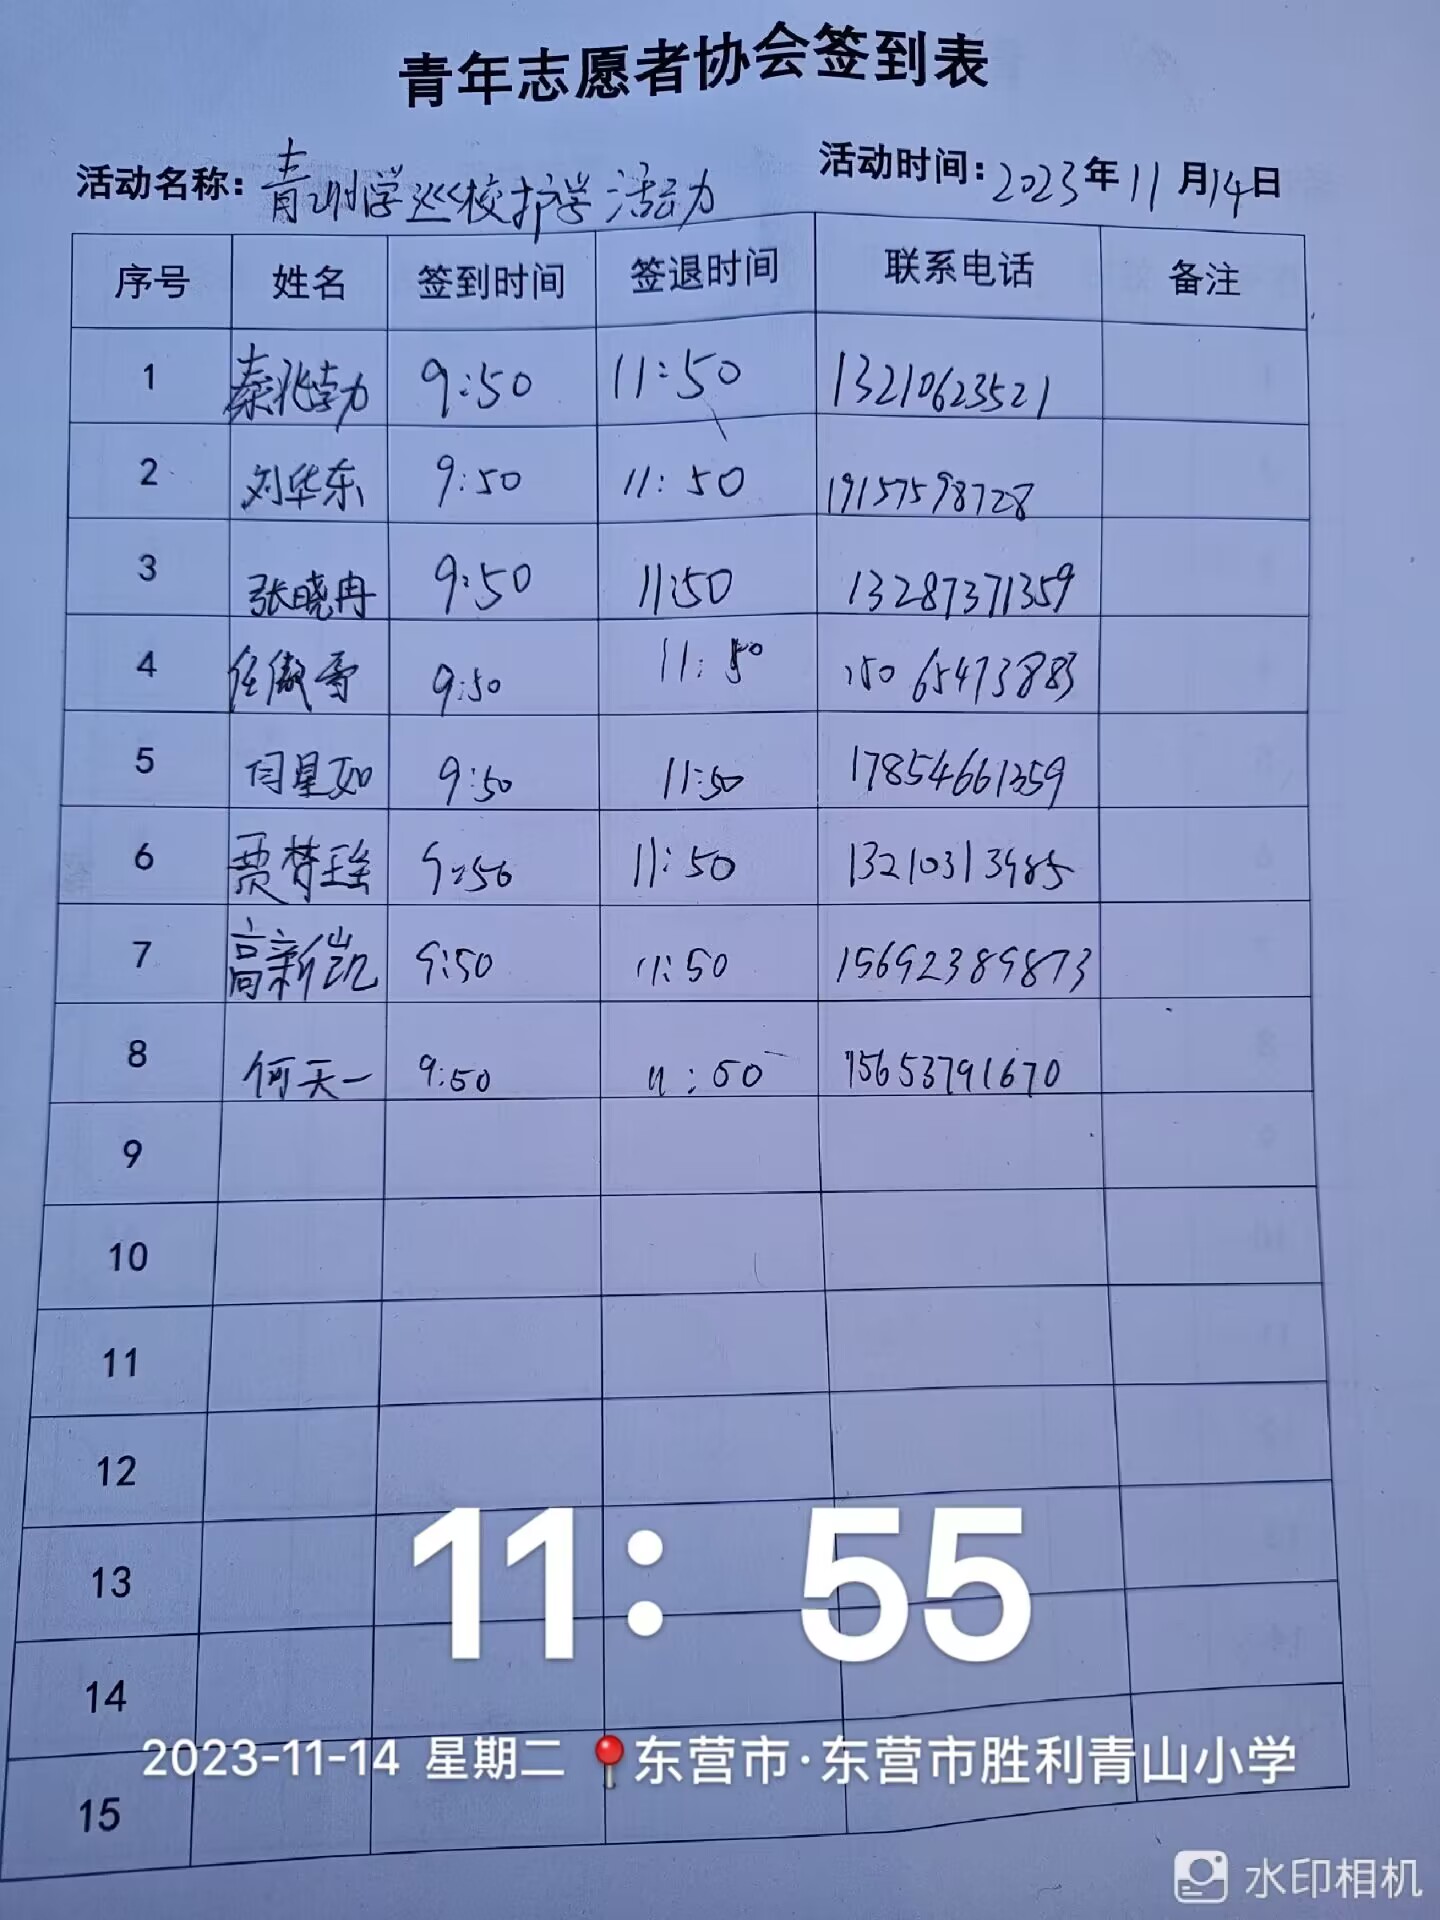 青年志愿者协会签到表
活动名称：青山小学巡校护学活动 活动时间：2023年11月14日
序号 姓名 签到时间 签退时间 联系电话 备注
1 秦兆勃 9:50 11:50 13210623521
2 刘华东 9:50 11:50 19157598728
3 张晓冉 9:50 11:50 13287371359
4 任傲雪 9:50 11:50 15065473883
5 闫星如 9:50 11:50 17854661359
6 贾梦瑶 9:50 11:50 13210313985
7 高新凯 9:50 11:50 15692389873
8 何天一 9:50 11:50 15653791670
9
10
11
12
13
14
15
11：55
2023-11-14 星期二 东营市·东营市胜利青山小学
水印相机